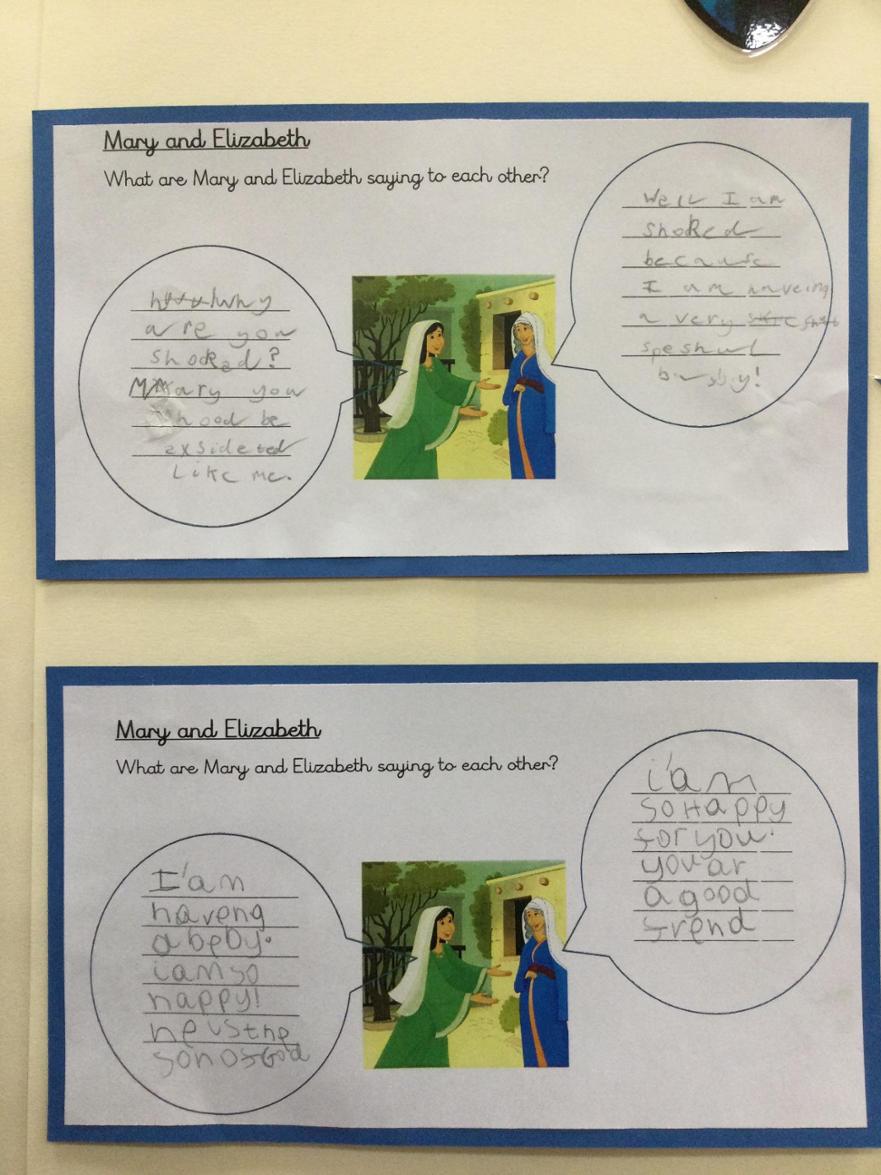 Mary and Elizabeth
What are Mary and Elizabeth saying to each other?
why
are you
shoked?
Mary you
shood be
exsideted
Like me.
Well I am
shoked
because
I am haveing
a very
speshul
Mary and Elizabeth
What are Mary and Elizabeth saying to each other?
I'am
haveng
a beby.
i am so
happy!
he us the
son of God
i'am
so Happy
for you.
you ar
a good
frend